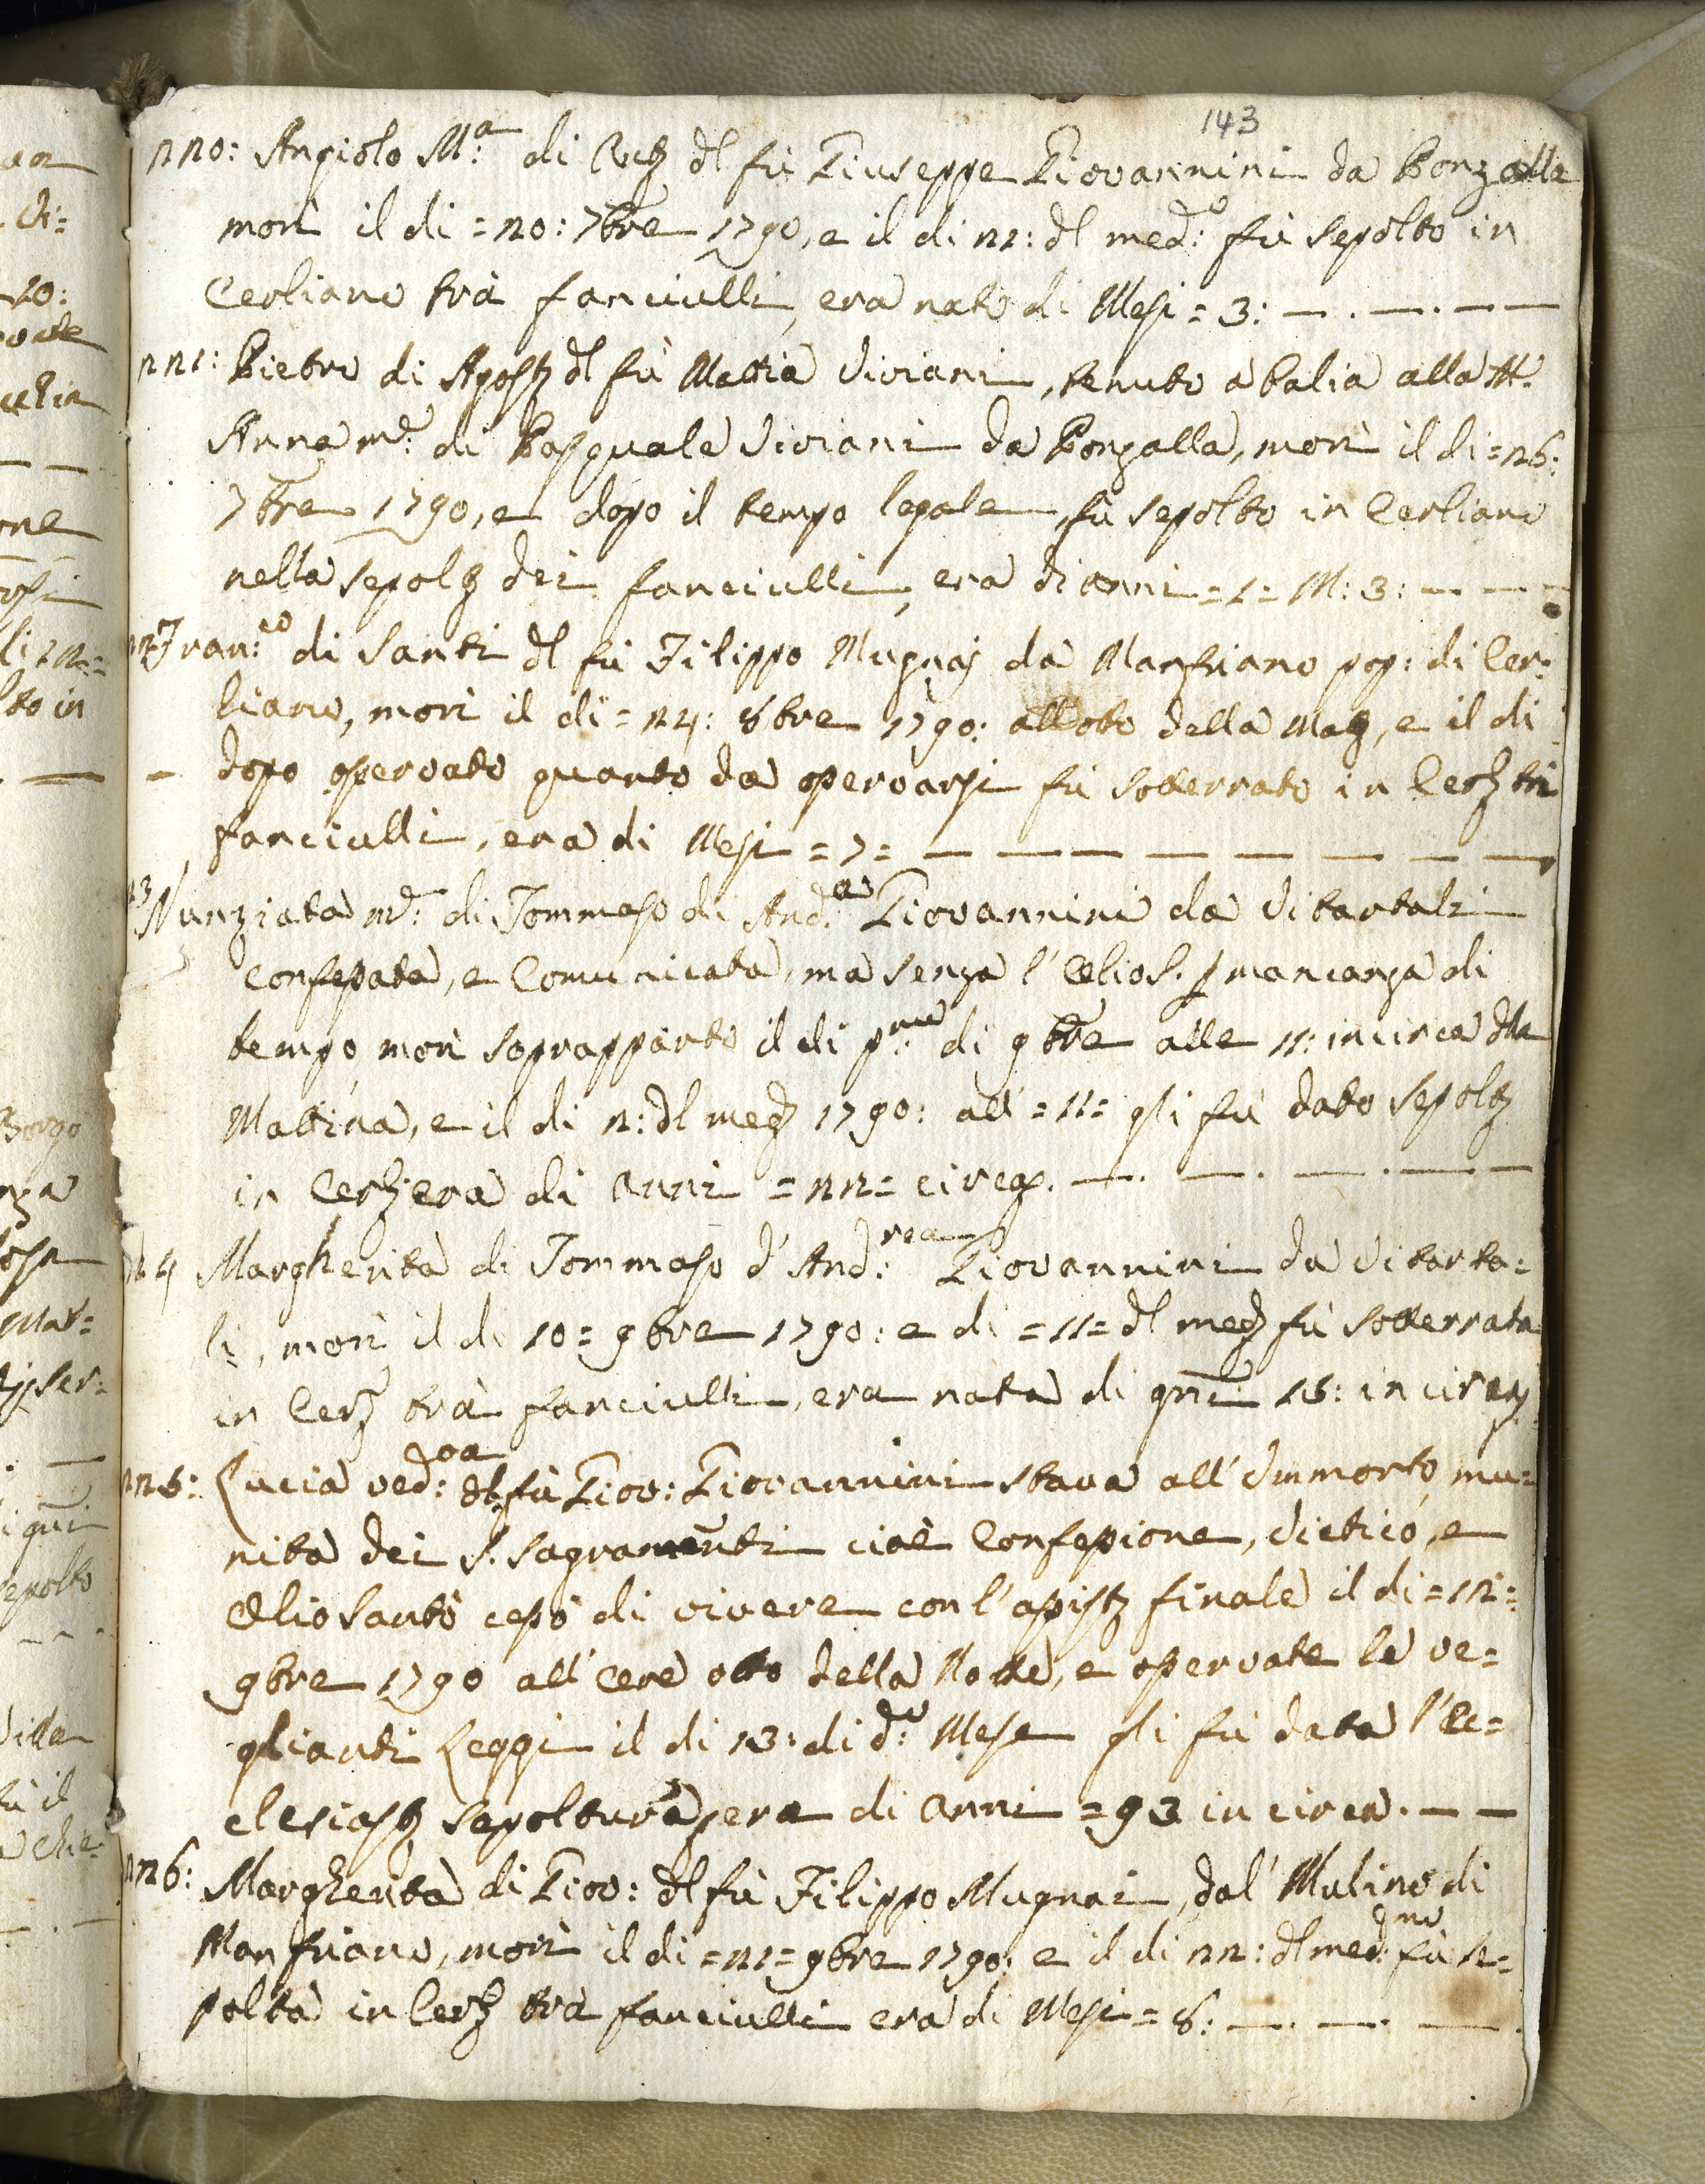 143
220: Angiolo M:ª di dl fù Giuseppe Giovannini da Bonzalla
morì il di = 20: 7bre 1790, e il di 21: dl med:º fù sepolto in
Cerliano trà fanciulli, era nato di Mesi = 3:
221: Pietro di Agost dl fù Mattia Viviani, tenuto a balia alla M.
Anna md: di Pasquale Viviani da Bonzalla, morì il di = 26:
7bre 1790, e dopo il tempo legale, fù sepolto in Cerliano
nella sepolz dei fanciulli, era di anni = 1 = M: 3:
Fran:co di Santi dl fù Filippo Mugnaj da Manfriano pop: di Cer:
liano, morì il di = 24: 8bre 1790: all otto della Maz, e il di
dopo osservato quanto da osservarsi fù sotterrato in Cerz trà
fanciulli, era di Mesi = 7 =
Nunziata md: di Tommaso di And:a Giovannini da Vitartali
Confessata, e Comunicata, ma senza l' Olio S. p mancanza di
tempo, morì soprapparto il di p:mo di 9bre alle 11: incirca dla
Mattina, e il di 2: dl medz 1790: all' = 11 = gli fù dato sepolz
in Cerz era di Anni = 22 = circa.
224 Margherita di Tommaso d' And:rea Giovannini da Vitarta=
li, morì il di 10 = 9bre 1790: e di = 11 = dl medz fù sotterrata
in Cerz trà fanciulli, era nata di gni 15: in circa
225: Lucia ved:oa dl fù Giov: Giovannini stava all' Immorto, mu=
nita dei S. Sagramenti cioè Confessione, Viatico, e
Olio Santo cessò di vivere con l' assistz finale il di = 12 =
9bre 1790 all' otto della Notte, e osservate le ve=
glianti Leggi il di 13: di d:º Mese gli fù data l' Ec=
clesiastz sepoltura, era di Anni = 93 in circa.
226: Margherita di Giov: dl fù Filippo Mugnai, dal' Mulino di
Manfriano, morì il di = 21 = 9bre 1790: e il di 22: dl med:mo fù se=
polta in Cerz trà fanciulli era di Mesi = 8: